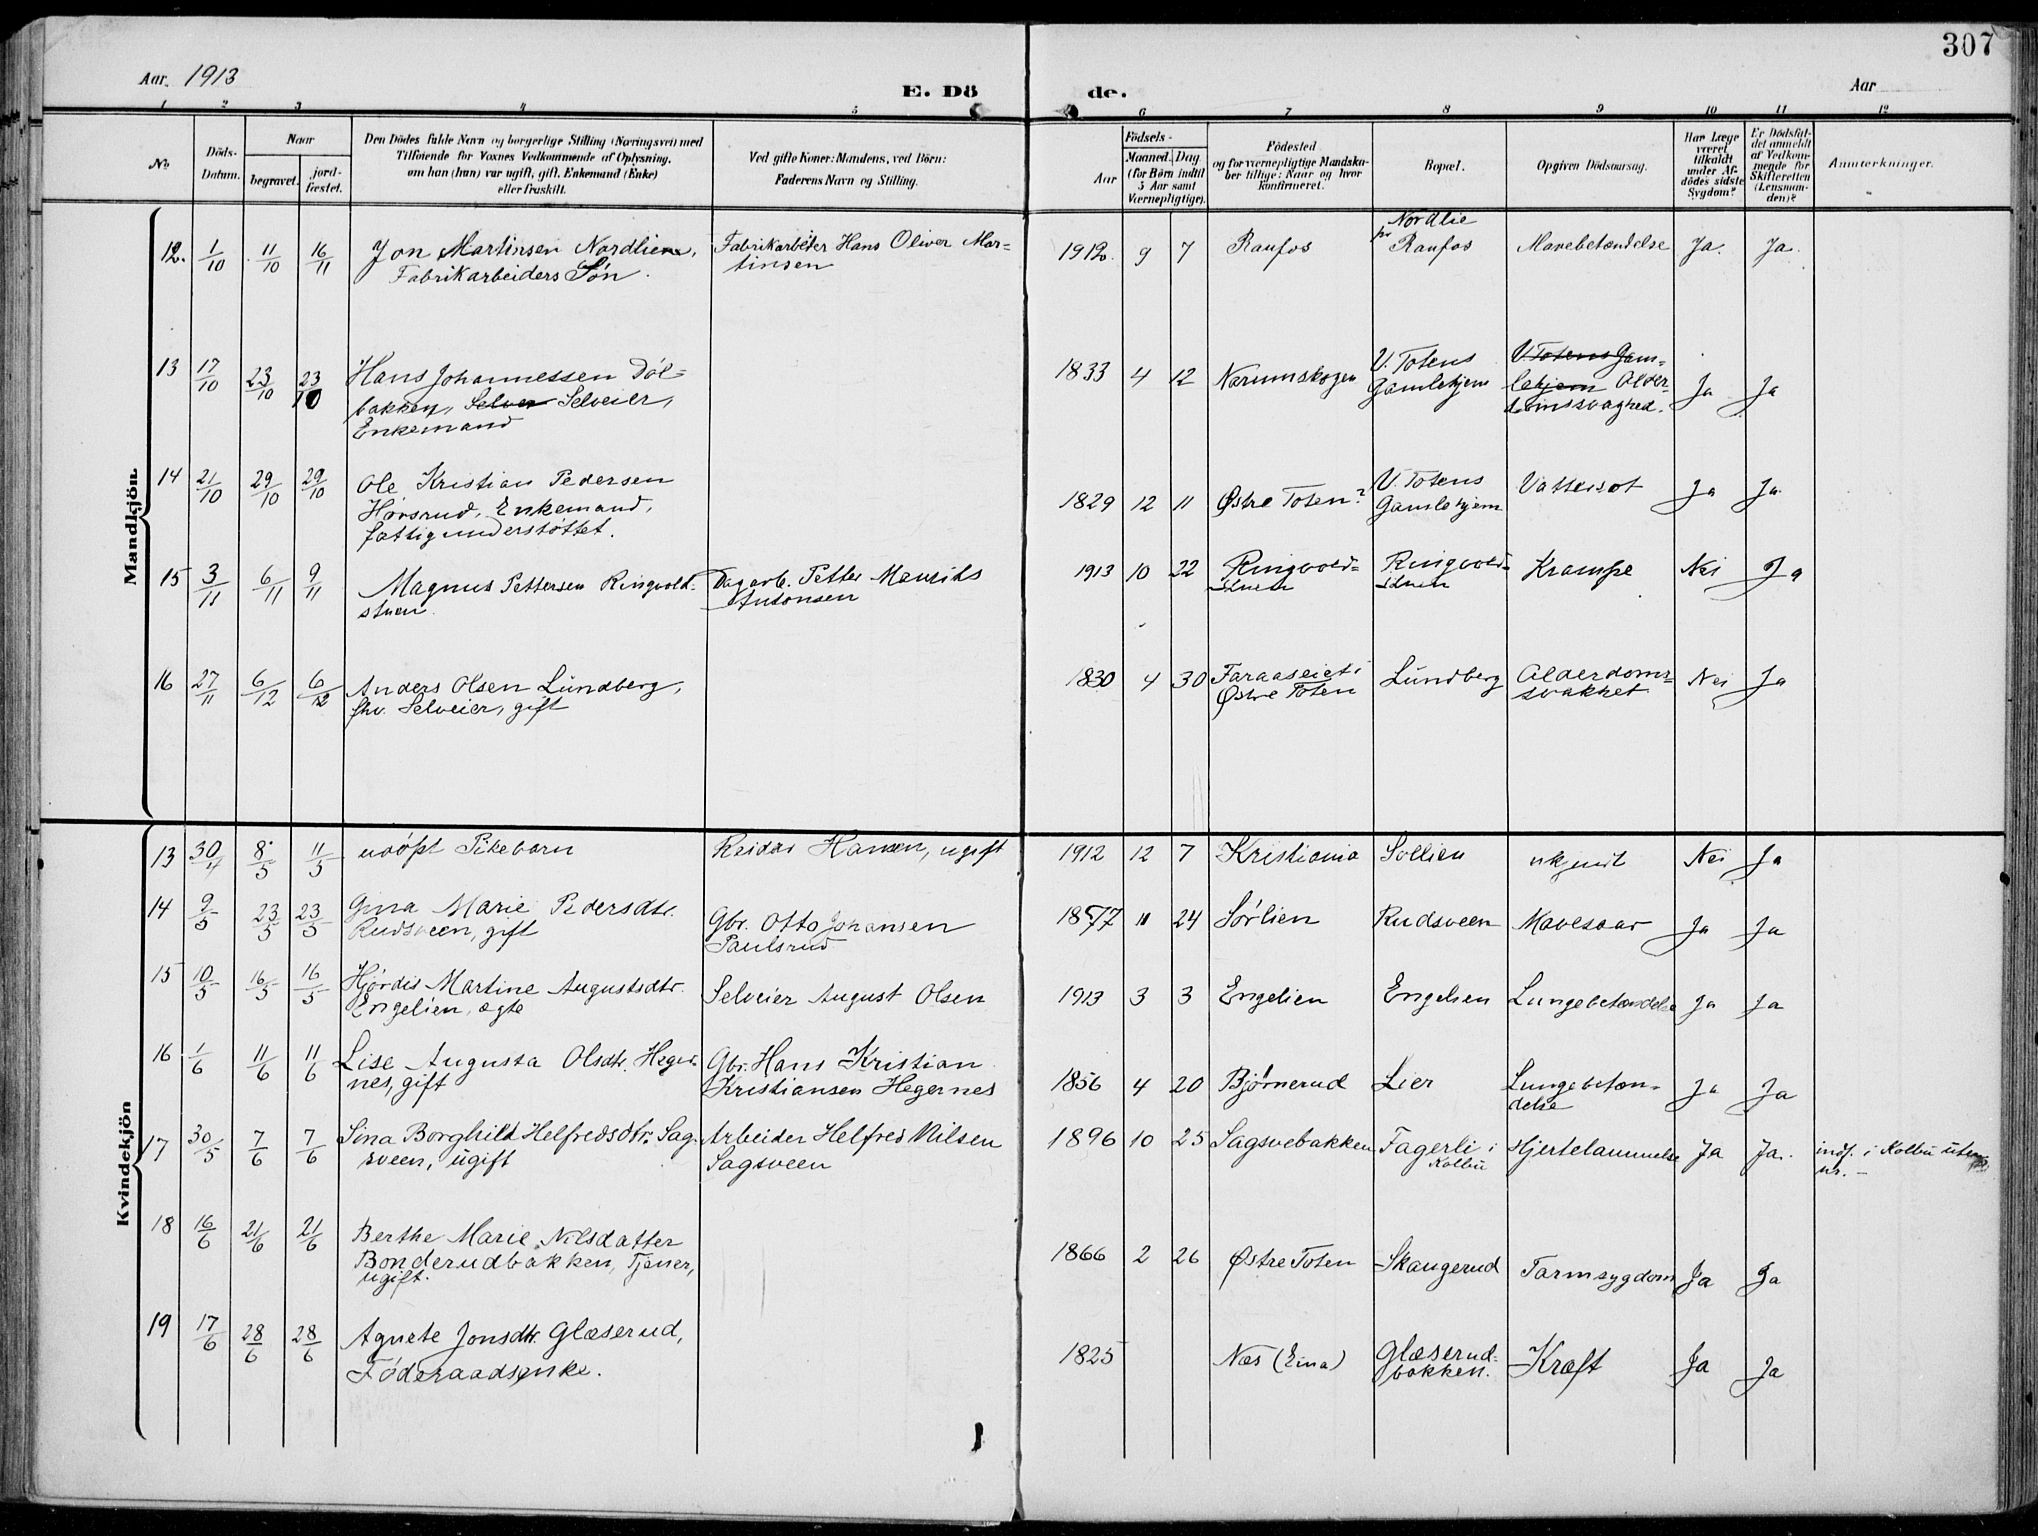 307
Aar. 1913
E. Dö de.
Aar
1 2 3 4 5 6 7 8 9 10 11 12
No
Döds-
Datum.
Naar
begravet.
jord-
fæstet.
Den Dödes fulde Navn og borgerlige Stilling (Næringsvei) med
Tilföiende for Voxnes Vedkommende af Oplysning,
om han (hun) var ugift, gift, Enkemand (Enke)
eller fraskilt.
Ved gifte Koner: Mandens, ved Börn:
Faderens Navn og Stilling.
Födsels-
Aar
Maaned. Dag
(for Börn indtil
5 Aar samt
Værnepligtige).
Födested
og for værnepligtige Mandska-
ber tillige: Naar og hvor
konfirmeret.
Bopæl.
Opgiven Dödsaarsag.
Har Læge
været
tilkaldt
under Af-
dödes sidste
Sygdom?
Er Dödsfal-
det anmeldt
af Vedkom-
mende for
Skifteretten
(Lensman-
den)?
Anmærkninger.
Mandkjön.
12. 1/10 11/10 16/11 Jon Martinsen Nordlien,
Fabrikarbeiders Søn.
Fabrikarbeiter Hans Oliver Mar-
tinsen
1912. 9 7 Raufos
Nordlie
pr Raufos
Mavebetændelse Ja. Ja.
13 17/10 23/10 23/10 Hans Johannessen Døl-
bakken, Selver Selveier,
Enkemand
1833 4 12 Narumskogen
V. Totens
Gamlehjem
V. Totens Gam-
lehjem Alder-
domssvaghed.
Ja Ja
14 21/10 29/10 29/10 Ole Kristian Pedersen
Hørsrud, Enkemand,
fattigunderstøttet.
1829 12 11 Østre Toten?
V. Totens
Gamlehjem
Vattersot Ja Ja
15 3/11 6/11 9/11 Magnus Pettersen Ringvold-
stuen.
Dagarb. Petter Mauritz
Antonsen
1913 10 22 Ringvold-
stuen
Ringvold-
stuen
Krampe Nei Ja
16 27/11 6/12 6/12 Anders Olsen Lundberg,
fhv. Selveier, gift
1830 4 30 Faraaseiet i
Østre Toten
Lundberg
Alderdoms-
svakhet
Nei Ja
Kvindekjön
13 30/4 8/5 11/5 udøpt Pikebarn
Reidar Hansen, ugift
1912 12 7 Kristiania Sollien ukjendt Nei Ja
14 9/5 23/5 23/5 Gina Marie Pedersdtr.
Rudsveen, gift
Gbr. Otto Johansen
Paulsrud
1857 11 24 Sørlien Rudsveen Mavesaar Ja Ja
15 10/5 16/5 16/5 Hjørdis Martine Augustsdtr.
Engelien, ægte
Selveier August Olsen
1913 3 3 Engelien Engelien Lungebetændelse Ja Ja
16 1/6 11/6 11/6 Lise Augusta Olsdtr. Heger-
nes, gift
Gbr. Hans Kristian
Kristiansen Hegernes
1856 4 20 Bjørnerud Lier
Lungebetæn-
delse
Ja Ja
17 30/5 7/6 7/6 Sina Borghild Helfredsdtr. Sag-
sveen, ugift
Arbeider Helfred Nilsen
Sagsveen
1896 10 25 Sagsvebakken
Fagerli i
Kolbu
Hjertelammelse Ja Ja.
indf. i Kolbu uten
nr. –
18 16/6 21/6 21/6 Berthe Marie Nilsdatter
Bonderudbakken, Tjener,
ugift.
1866 2 26 Østre Toten Skaugerud Tarmsygdom Ja Ja
19 17/6 28/6 28/6 Agnete Jonsdtr. Glæserud,
Føderaadsenke.
1825 Næs (Eina)
Glæserud-
bakken.
Kræft Ja Ja